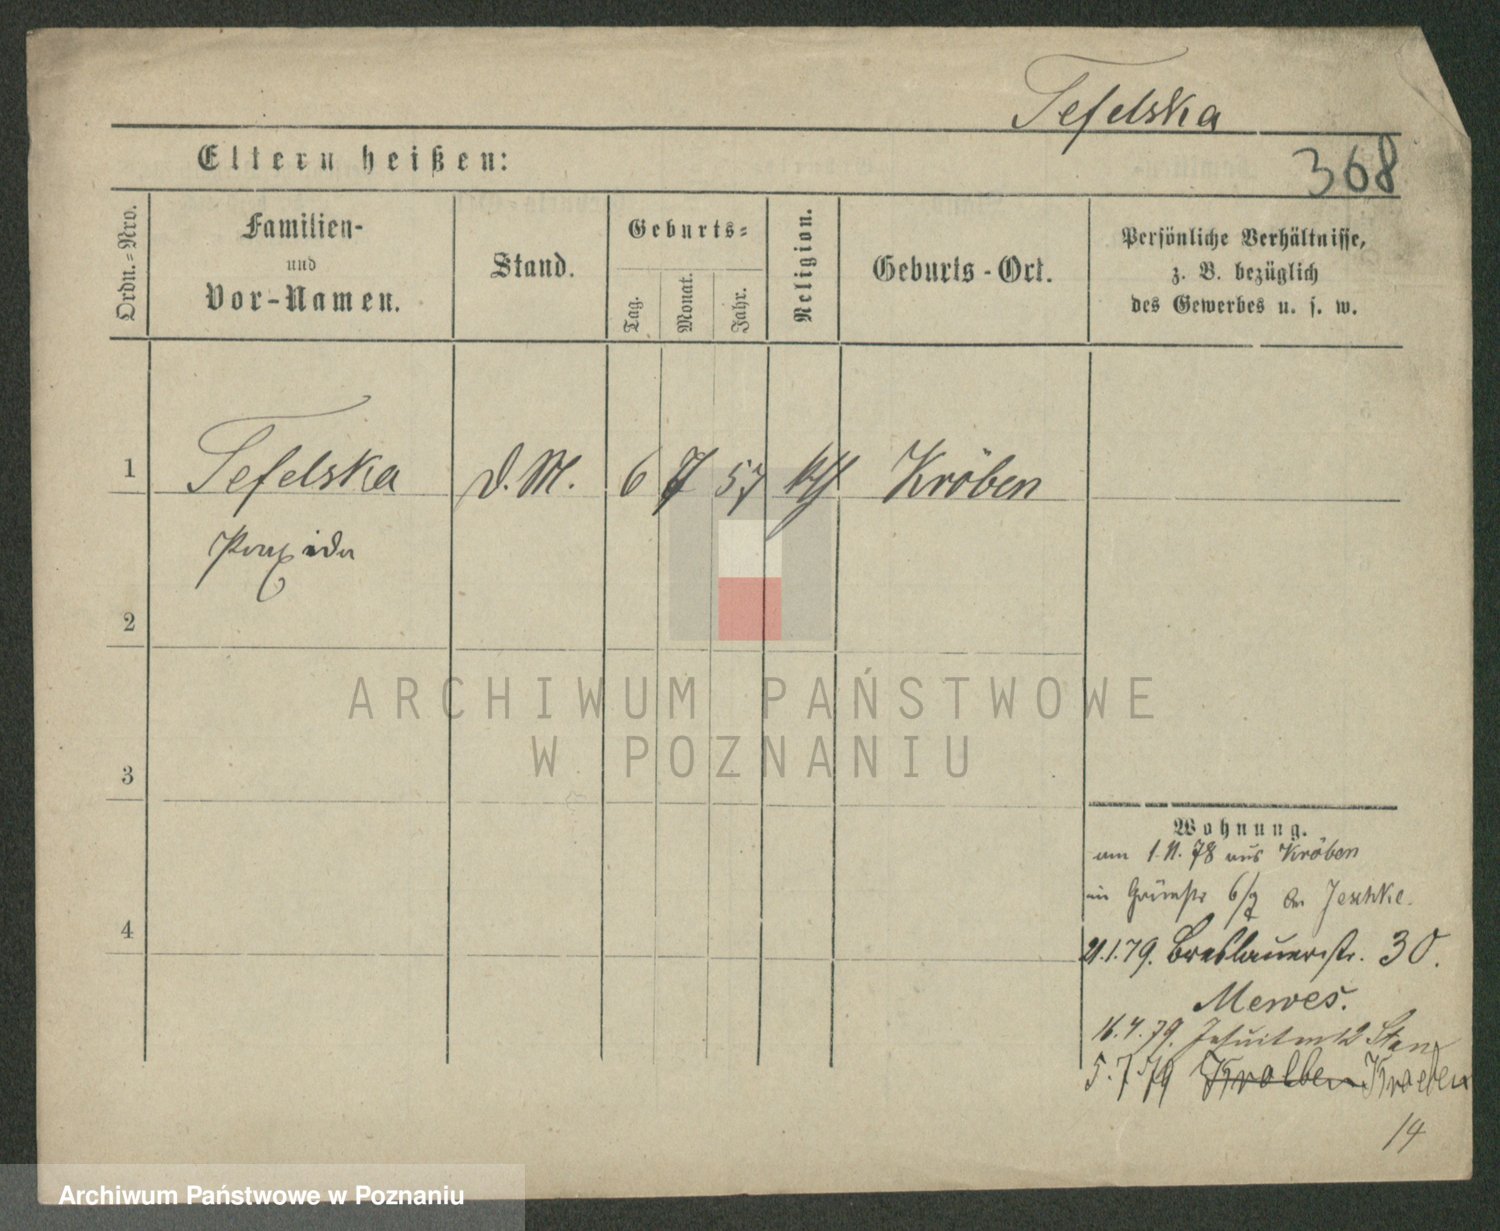 Tefelska
Eltern heißen:
368
Ordn.-Nro.
Familien-
und
Vor-Namen.
Stand.
Geburts-
Tag.
Monat.
Jahr.
Religion.
Geburts-Ort.
Persönliche Verhältnisse,
z. B. bezüglich
des Gewerbes u. s. w.
1 Tefelska D. M. 6 7 57 kth Kröben
2
3
4
ARCHIWUM PAŃSTWOWE
W POZNANIU
Wohnung.
am 1. 11. 78 aus Kröben
in 6/7 Jeschke.
21.1.79. Breslauerstr. 30.
Mewes.
16.4.79.
5.7.79 Kroeben
14
Archiwum Państwowe w Poznaniu